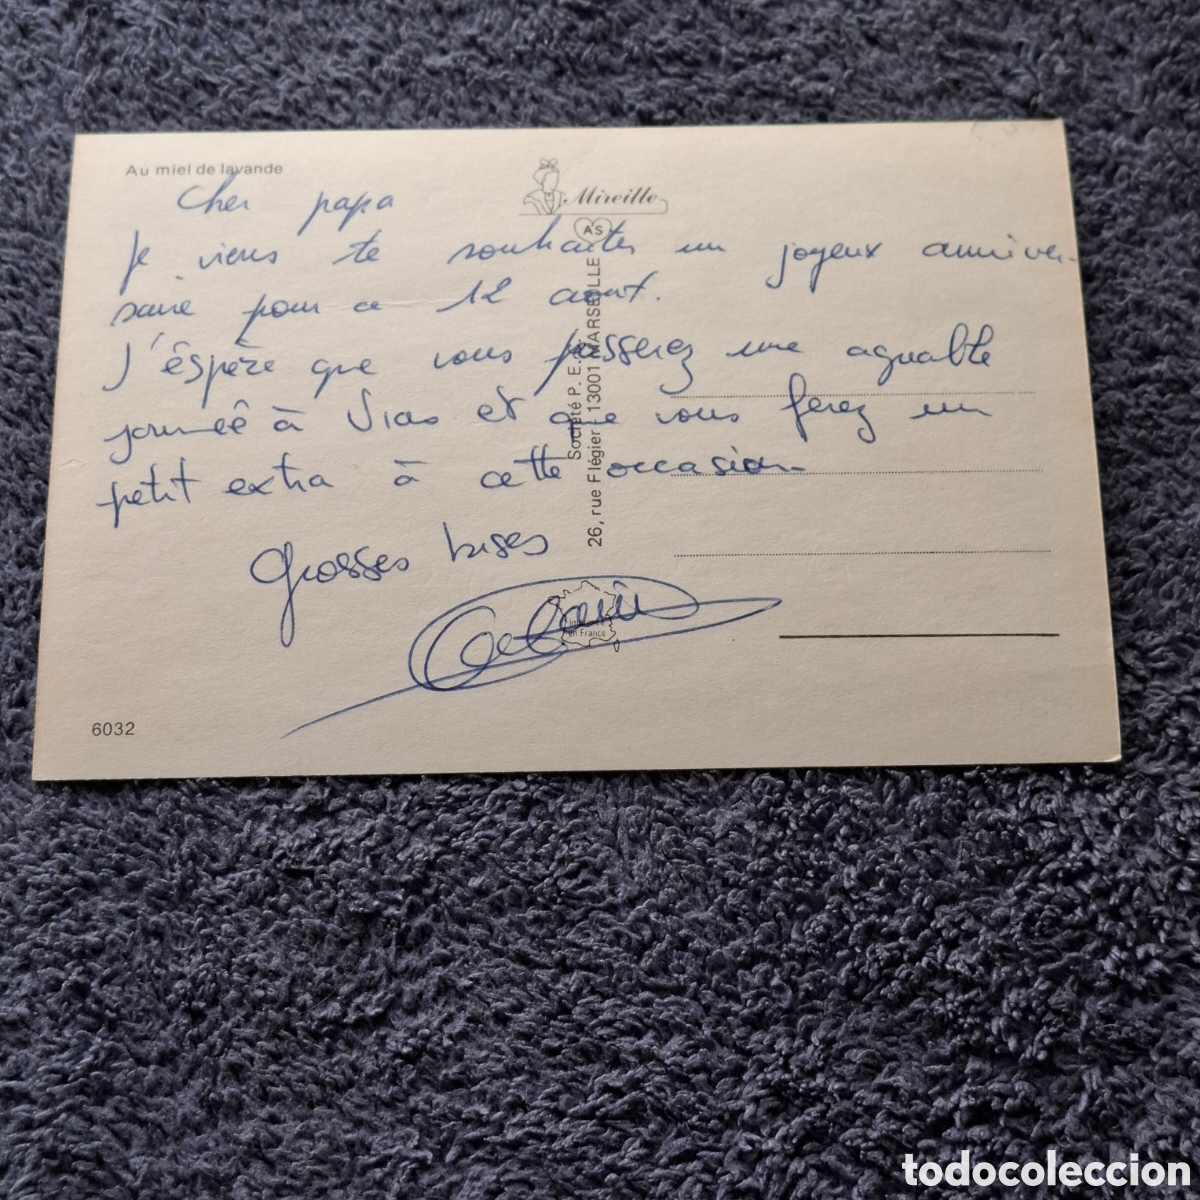 Au miel de lavande
Mireille
AS
Cher papa
Je viens te souhaiter un joyeux anniver-
saire pour ce 12 aout.
J'éspère que vous passerez une agreable
journeê à Vias et que vous ferez un
petit extra à cette occasion
Grosses bises
Société P. E.
26, rue Flégier - 13001 MARSEILLE
Imprimé
en France
6032
todocoleccion